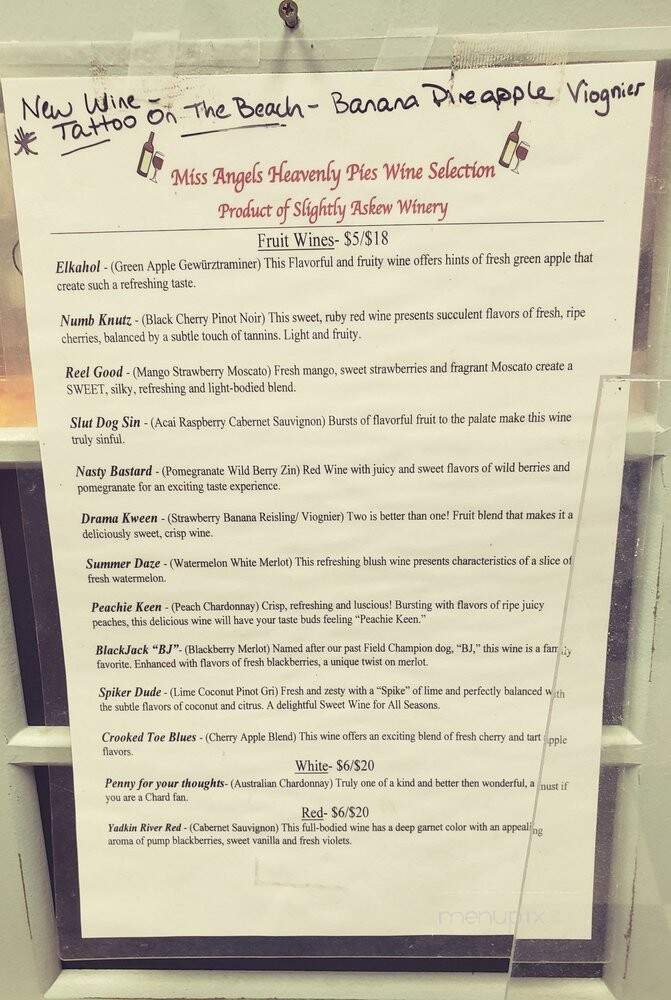 New Wine -
* Tattoo On The Beach - Banana Pineapple Viognier
Miss Angels Heavenly Pies Wine Selection
Product of Slightly Askew Winery
Fruit Wines- $5/$18
Elkahol - (Green Apple Gewürztraminer) This Flavorful and fruity wine offers hints of fresh green apple that
create such a refreshing taste.
Numb Knutz - (Black Cherry Pinot Noir) This sweet, ruby red wine presents succulent flavors of fresh, ripe
cherries, balanced by a subtle touch of tannins. Light and fruity.
Reel Good - (Mango Strawberry Moscato) Fresh mango, sweet strawberries and fragrant Moscato create a
SWEET, silky, refreshing and light-bodied blend.
Slut Dog Sin - (Acai Raspberry Cabernet Sauvignon) Bursts of flavorful fruit to the palate make this wine
truly sinful.
Nasty Bastard - (Pomegranate Wild Berry Zin) Red Wine with juicy and sweet flavors of wild berries and
pomegranate for an exciting taste experience.
Drama Kween - (Strawberry Banana Reisling/ Viognier) Two is better than one! Fruit blend that makes it a
deliciously sweet, crisp wine.
Summer Daze - (Watermelon White Merlot) This refreshing blush wine presents characteristics of a slice of
fresh watermelon.
Peachie Keen - (Peach Chardonnay) Crisp, refreshing and luscious! Bursting with flavors of ripe juicy
peaches, this delicious wine will have your taste buds feeling "Peachie Keen."
BlackJack "BJ"- (Blackberry Merlot) Named after our past Field Champion dog, "BJ," this wine is a family
favorite. Enhanced with flavors of fresh blackberries, a unique twist on merlot.
Spiker Dude - (Lime Coconut Pinot Gri) Fresh and zesty with a "Spike" of lime and perfectly balanced with
the subtle flavors of coconut and citrus. A delightful Sweet Wine for All Seasons.
Crooked Toe Blues - (Cherry Apple Blend) This wine offers an exciting blend of fresh cherry and tart apple
flavors.
White- $6/$20
Penny for your thoughts- (Australian Chardonnay) Truly one of a kind and better then wonderful, a must if
you are a Chard fan.
Red- $6/$20
Yadkin River Red - (Cabernet Sauvignon) This full-bodied wine has a deep garnet color with an appealing
aroma of pump blackberries, sweet vanilla and fresh violets.
menupix